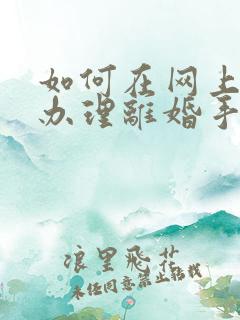 如何在网上
办理離婚手
浪里飛花
未经同意禁止转载